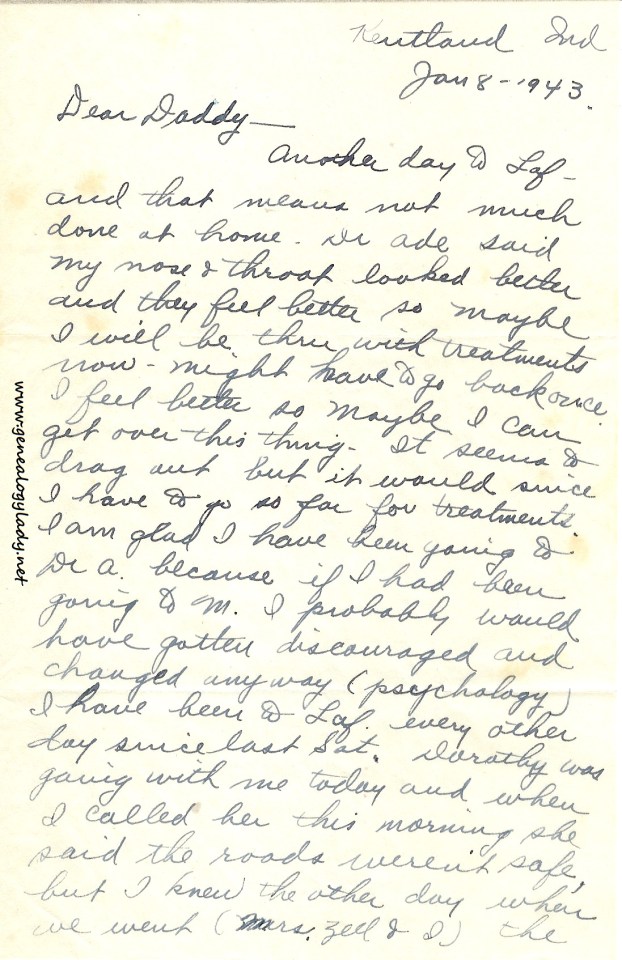 Kentland Ind
Jan 8 - 1943.
Dear Daddy —
Another day to Laf -
and that means not much
done at home. Dr Ade said
my nose & throat looked better
and they feel better so maybe
I will be thru with treatments
now - might have to go back once.
I feel better so maybe I can
get over this thing. It seems to
drag out but it would since
I have to go so far for treatments.
I am glad I have been going to
Dr A. because if I had been
going to M. I probably would
have gotten discouraged and
changed anyway (psychology)
I have been to Laf. every other
day since last Sat. Dorothy was
going with me today and when
I called her this morning she
said the roads weren't safe,
but I knew the other day when
we went (Mrs. Zell & I) the
www.genealogylady.net